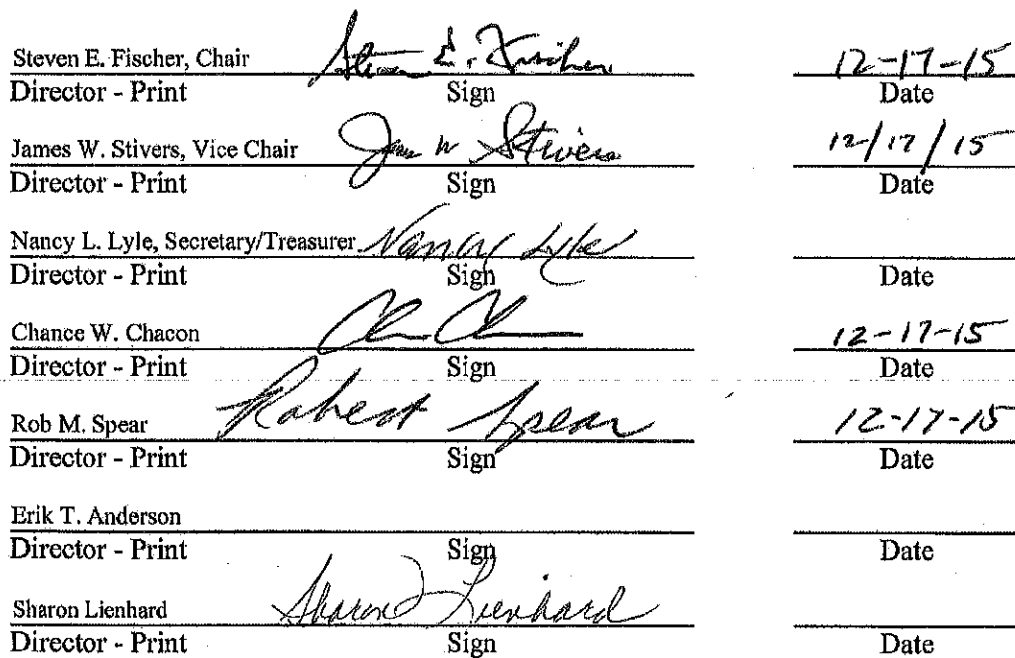 Steven E. Fischer, Chair Steven E. Fischer 12-17-15
Director - Print Sign Date
James W. Stivers, Vice Chair James W Stivers 12/17/15
Director - Print Sign Date
Nancy L. Lyle, Secretary/Treasurer Nancy Lyle
Director - Print Sign Date
Chance W. Chacon 12-17-15
Director - Print Sign Date
Rob M. Spear Robert Spear 12-17-15
Director - Print Sign Date
Erik T. Anderson
Director - Print Sign Date
Sharon Lienhard Sharon Lienhard
Director - Print Sign Date